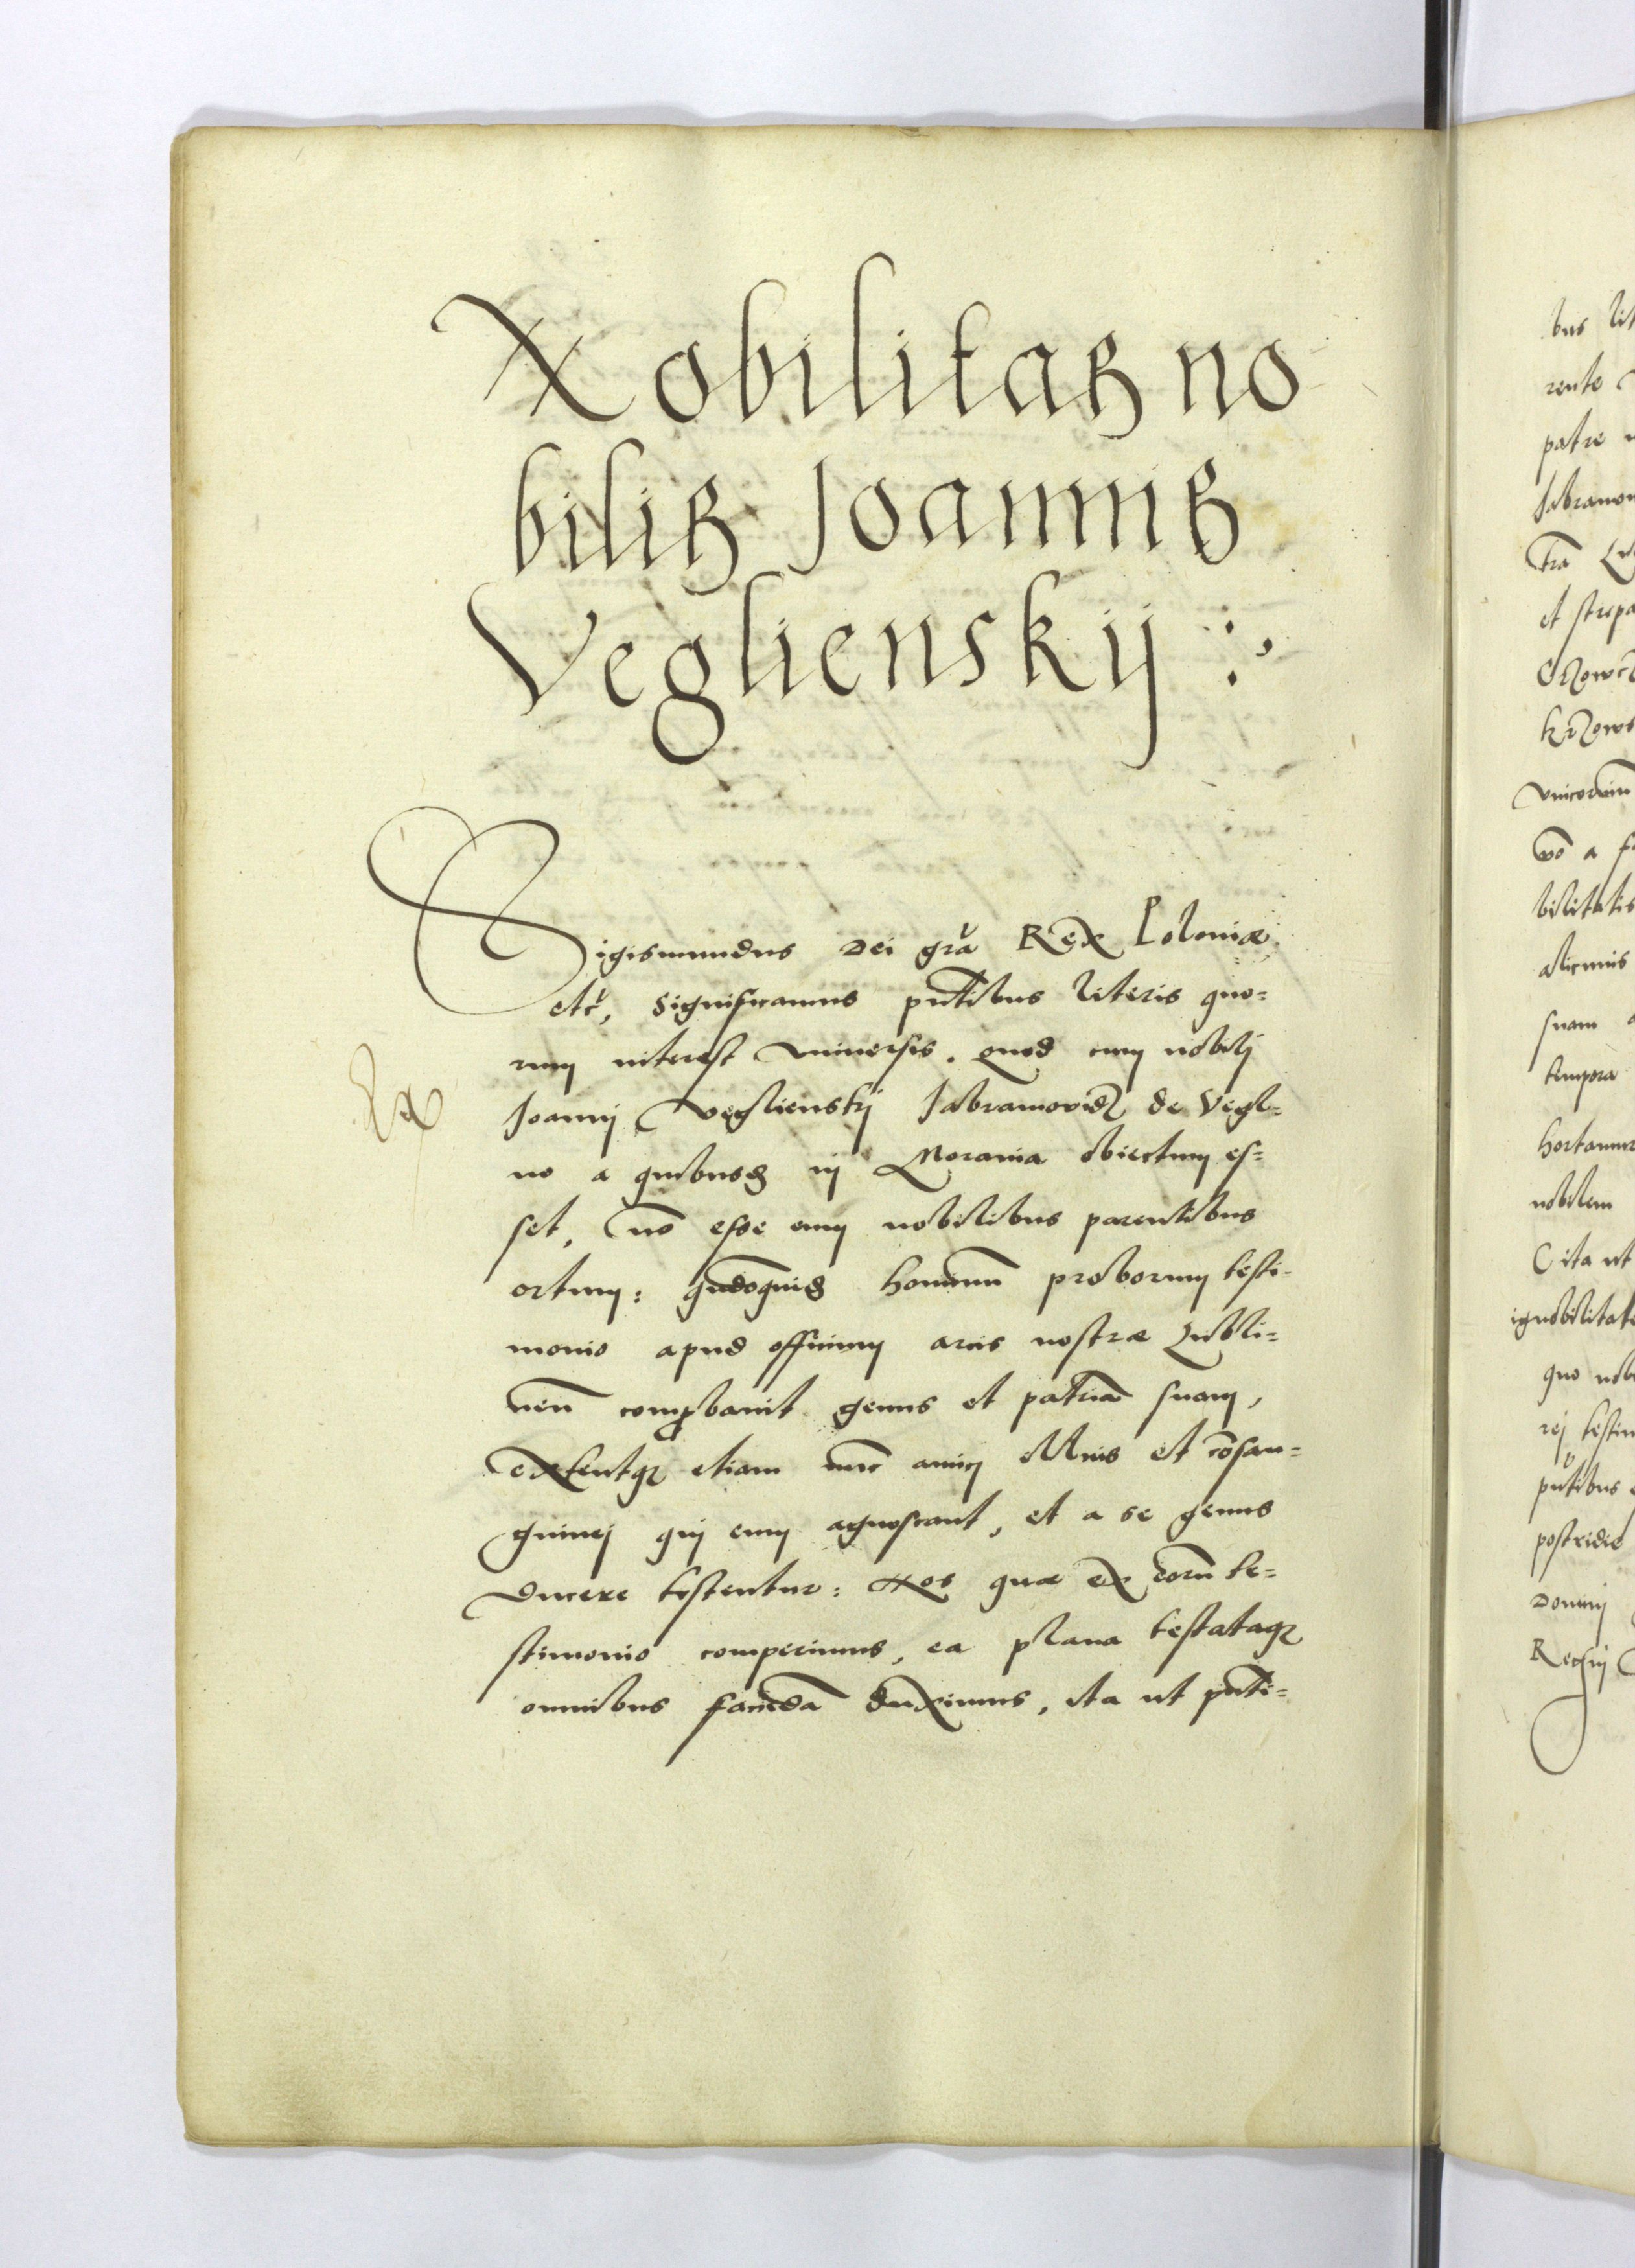 Nobilitas no
bilis Joannis
Veglienskij
Sigismundus Dei gra Rex Poloniæ
etc, Significamus pntibus literis quo=
rum interest vniuersis. quod cum nobilj
Joannj Veglienskj Jabramovicz de Vegle=
no a quibusd in Morauia obiectum es=
set, no esse eum nobilibus parentibus
ortum: hominum proborum testi=
monio apud officium arcis nostræ Lubli=
nen comprobauit genus et patria suam,
extentque etiam nunc amicj illius et cosan=
guinej quj eum agnoscant, et a se genus
ducere testentur: Nos quæ ex eorum te=
stimonio comperimus, ea plana testataque
omnibus facienda duximus, ita ut pnti=
bus lit
rente
patre
Jabramou
tra
et stripa
vnicornium
vo a
bilitatis
alicuius
suam
tempora
hortamur
nobilem
ita ut
ignobilitate
quo nob
rej testim
pntibus
postridie
Dominj
Regnj